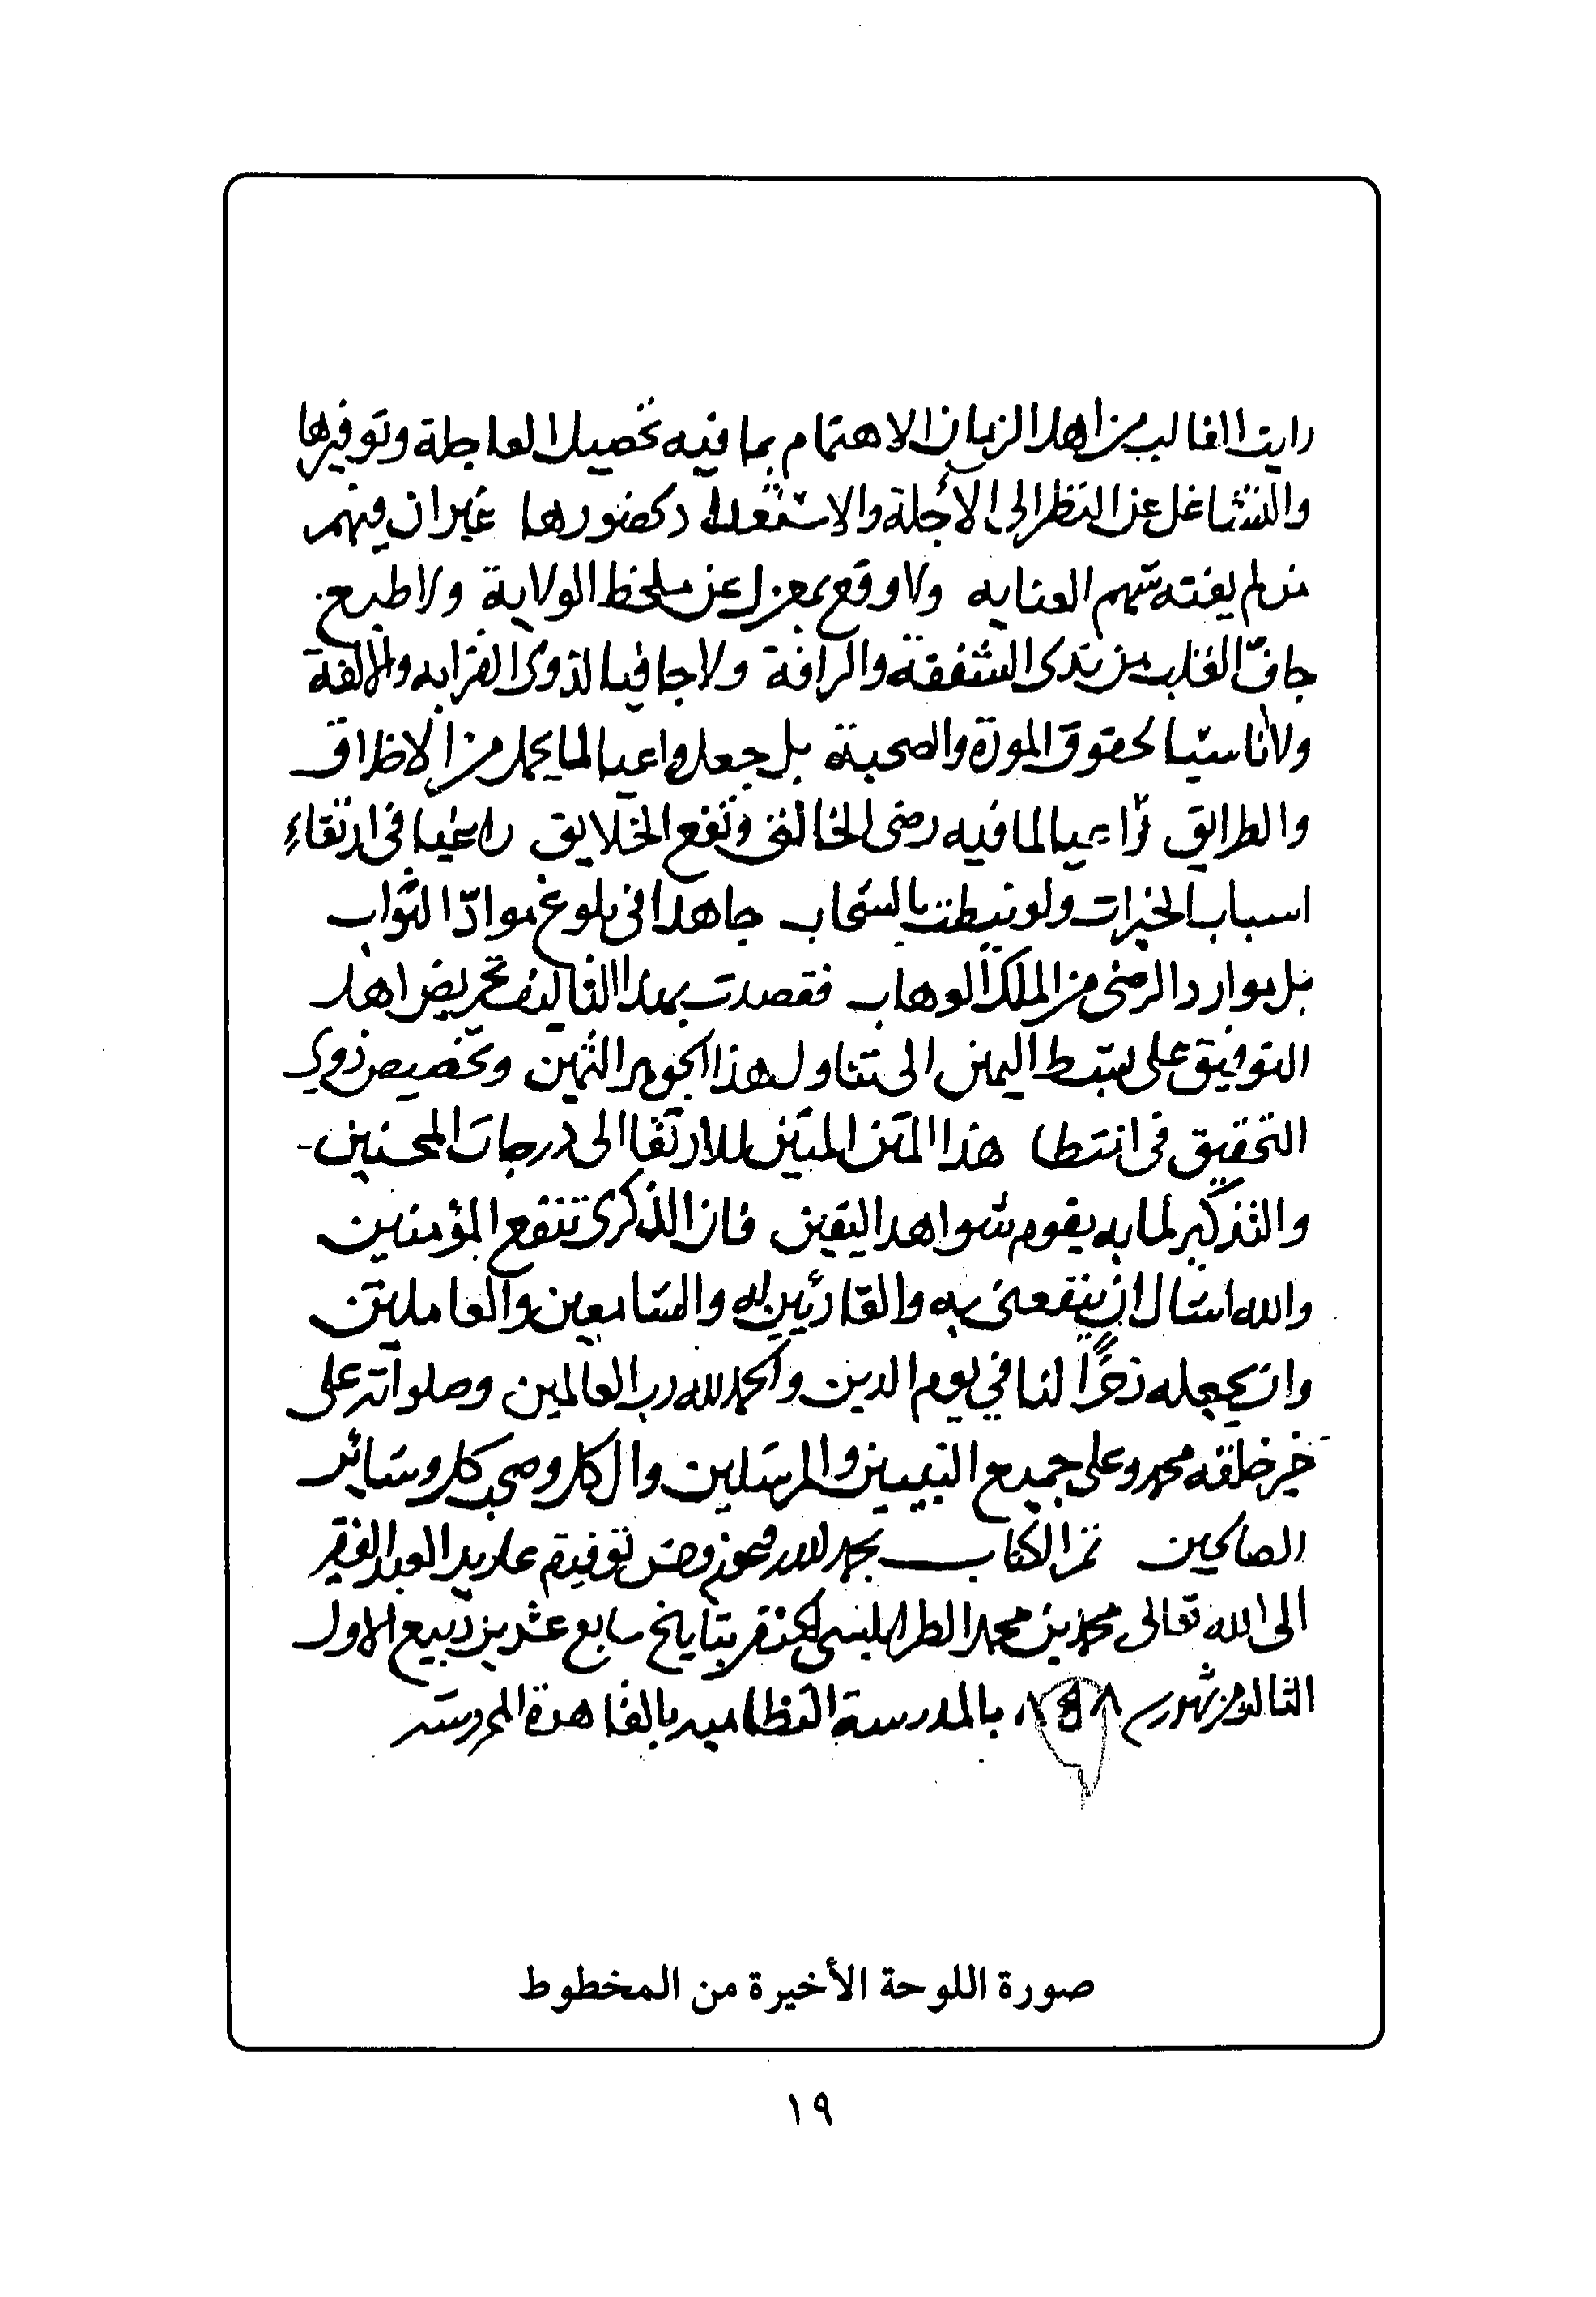 رايت الغالب من اهل الزمان الاهتمام بما فيه تحصيل العاجلة وتوفيرها
والتشاغل عن النظر الى الآجلة والاستعداد لحضورها غير ان فيهم
من لم يفته سهم العنايه ولا وقع بمعزل عن ملحظ الولاية ولا طبع
جافّ القلب من ندى الشفقة والرافة ولا جافيا لذوى القرابه والالفة
ولا ناسيا لحقوق المودة والصحبة بل جعل واعيا لما يحمل من الاخلاق
والطرايق راعيا لما فيه رضى الخالق ونفع الخلايق راغبا فى ارتقاء
اسباب الخيرات ولو نيطت بالسحاب جاهدا فى بلوغ موادّ الثواب
بل موارد الرضى من الملك الوهاب فقصدت بهذا التاليف تحريض اهل
التوفيق على بسط اليمين الى تناول هذا الجوهر الثمين وتخصيص ذوي
التحقيق فى هذا المتن المتين للارتقا الى درجات المحسنين
والتذكير لما به يقوم شواهد اليقين فان الذكرى تنفع المؤمنين
والله اسال ان ينفعنى به والقارئين له والسامعين والعاملين
وان يجعله ذخرًا لنا في يوم الدين والحمد لله رب العالمين وصلواته على
خير خلقه محمد وعلى جميع النبيين والمرسلين وال كل وصحب كل وسائر
الصالحين تم الكتاب بحمد الله وعونه وحسن توفيقه على يد العبد الفقير
الى الله تعالى محمد بن محمد الطرابلسى بتاريخ سابع عشرين ربيع الاول
من شهور بالمدرسة النظاميه بالقاهرة المحروسه
صورة اللوحة الأخيرة من المخطوط
١٩